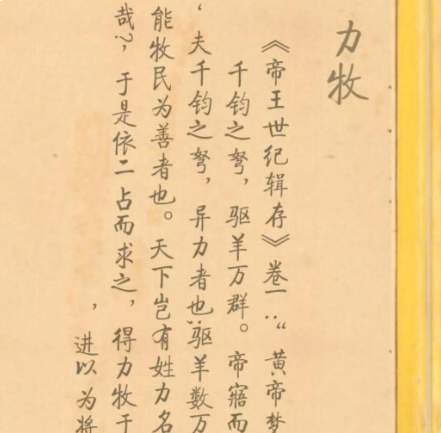 力牧
《帝王世纪辑存》卷一：“黄帝梦
千钧之弩，驱羊万群。帝寤而
‘夫千钧之弩，异力者也；驱羊数万
能牧民为善者也。天下岂有姓力名
哉？’于是依二占而求之，得力牧于
，进以为将